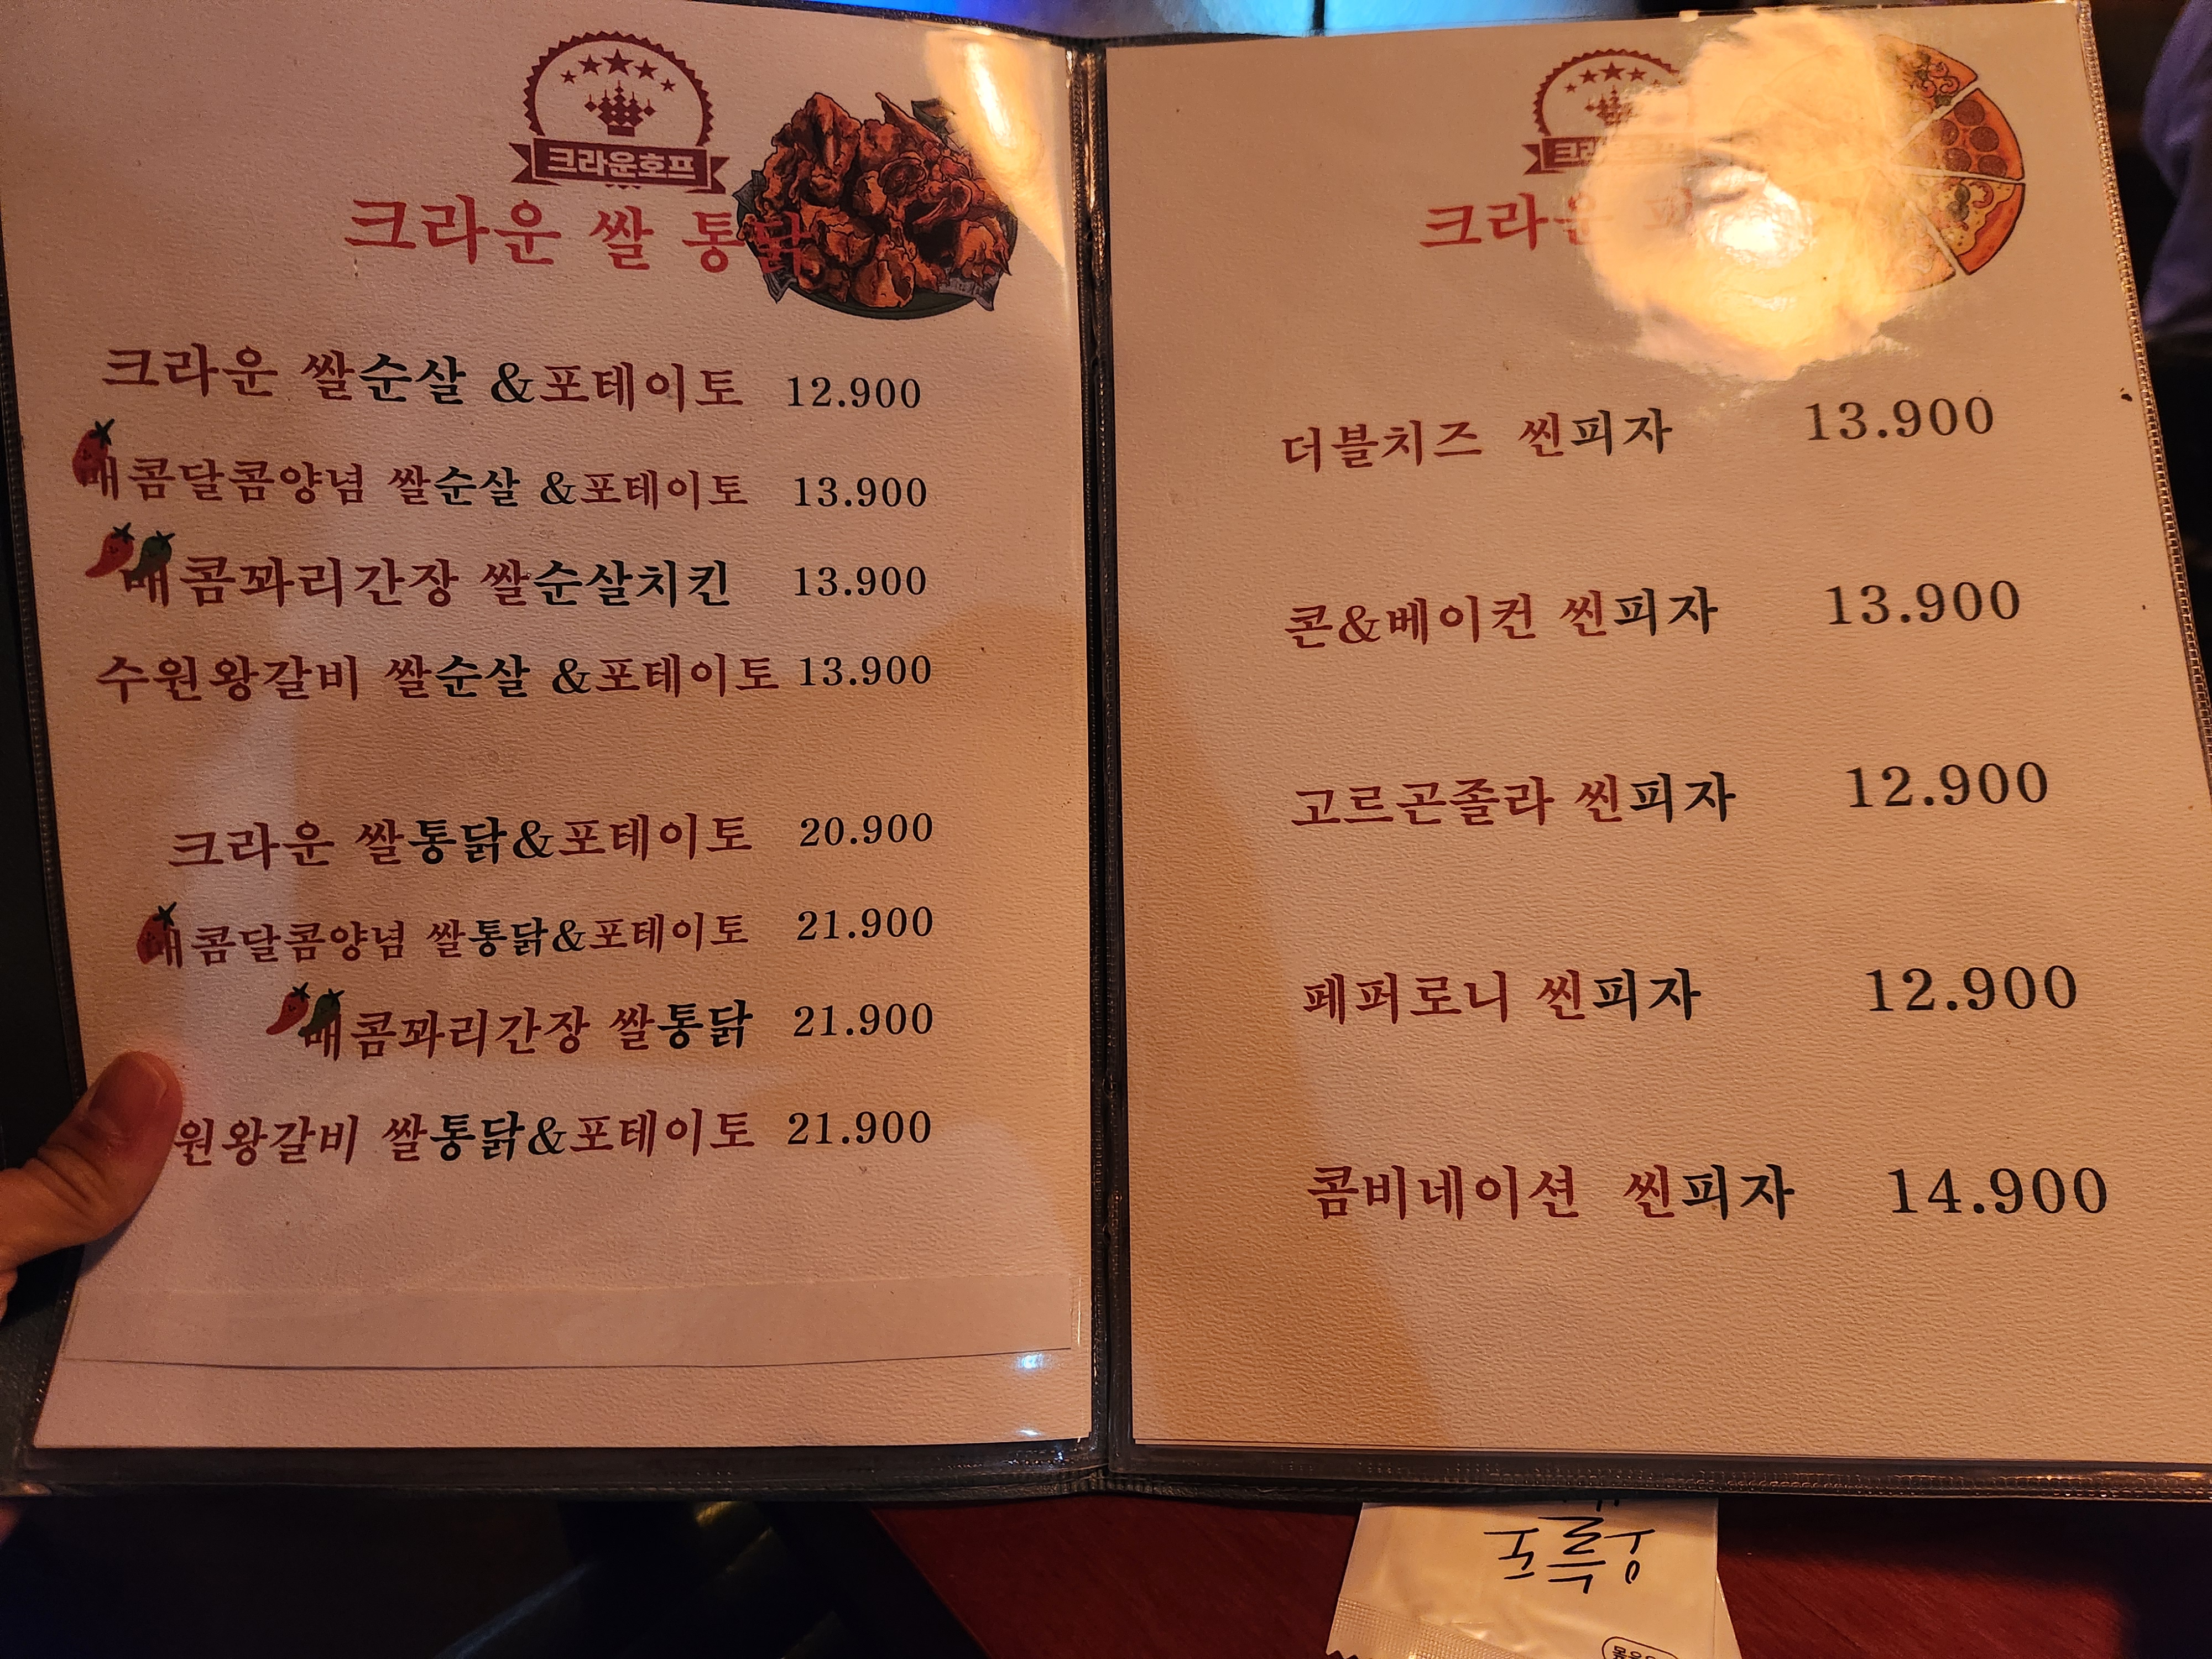 크라운호프
크라운 쌀 통닭
크라운 쌀순살 &포테이토 12.900
매콤달콤양념 쌀순살 &포테이토 13.900
매콤꽈리간장 쌀순살치킨 13.900
수원왕갈비 쌀순살 &포테이토 13.900
크라운 쌀통닭&포테이토 20.900
매콤달콤양념 쌀통닭&포테이토 21.900
매콤꽈리간장 쌀통닭 21.900
원왕갈비 쌀통닭&포테이토 21.900
크라운
더블치즈 씬피자 13.900
콘&베이컨 씬피자 13.900
고르곤졸라 씬피자 12.900
페퍼로니 씬피자 12.900
콤비네이션 씬피자 14.900